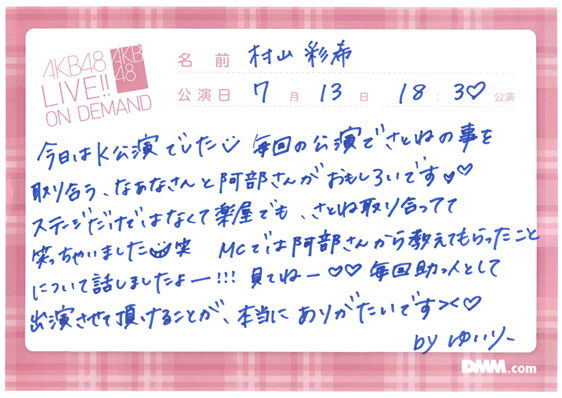 AKB48
LIVE!!
ON DEMAND
AKB
48
名前 村山彩希
公演日 7月13日 18:30♡公演
今日はK公演でした 毎回の公演でさとねの事を
取り合う、なぁなさんと阿部さんがおもしろいです♡♡
ステージだけではなくて楽屋でも、さとね取り合ってて
笑っちゃいました笑 MCでは阿部さんから教えてもらったこと
について話しましたよー!!! 見てねー♡♡ 毎回助っ人として
出演させて頂けることが、本当にありがたいです><♡
by ゆいりー
DMM.com